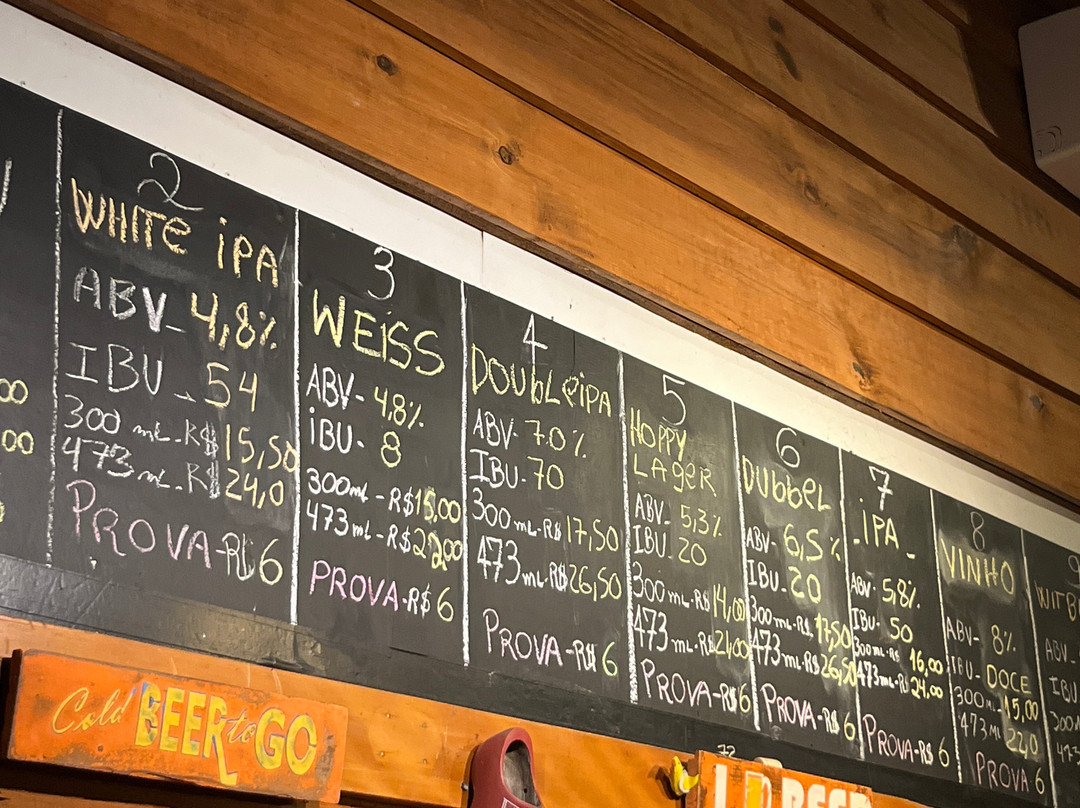 00
00
2
WHITE IPA
ABV- 4,8%
IBU - 54
300 mL-R$ 15,50
473 mL-R$ 24,0
PROVA-R$6
3
WEISS
ABV- 4,8%
IBU- 8
300mL-R$15,00
473mL-R$22,00
PROVA-R$6
4
DOUBLEIPA
ABV- 7.0%
IBU-70
300mL-R$17,50
473mL-R$26,50
PROVA-R$6
5
HOPPY
LAGER
ABV- 5,3%
IBU- 20
300mL-R$14,00
473mL-R$21,00
PROVA-R$6
6
DUBBEL
ABV- 6,5%
IBU- 20
300mL-R$ 17,50
473mL-R$26,50
PROVA-R$6
7
-IPA-
ABV- 5,8%
IBU- 50
300mL-R$ 16,00
473mL-R$ 24,00
PROVA-R$6
8
VINHO
ABV- 8%
IBU- DOCE
300mL 15,00
473mL 22,0
PROVA 6
9
WITB
ABV-
IBU
300m
473
Cold BEER to GO